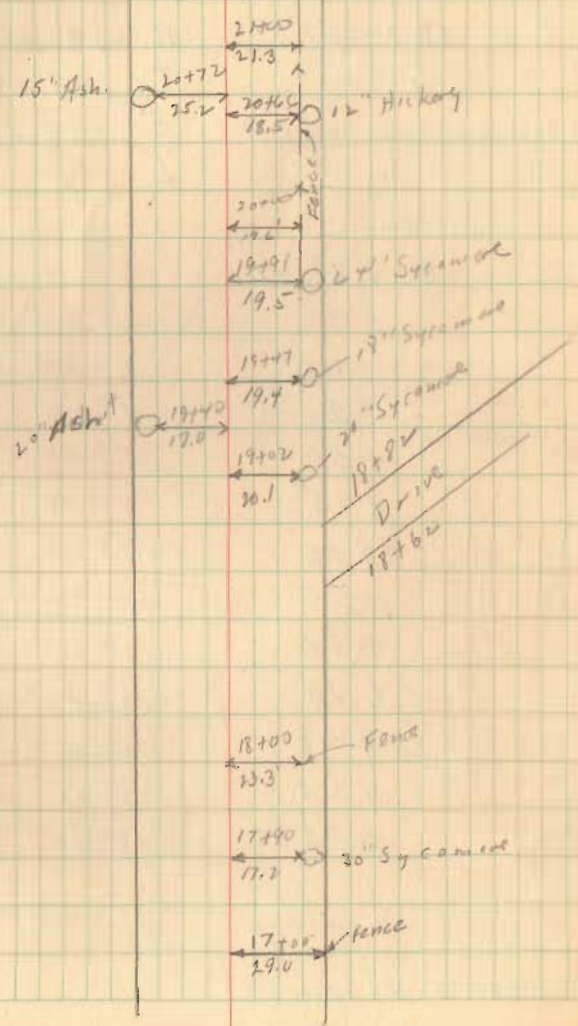 21+00
21.3
15" Ash.
20+72
25.2
18.5
12" Hickory
Fence
20+00
19+91
19.5
Sycamore
19.4
18" Sycamore
20" Ash
19+40
17.0
19+02
20.1
Sycamore
18+82
Drive
18+62
18+00
23.3
Fence
17+90
17.2
30" Sycamore
17+00
29.0
fence